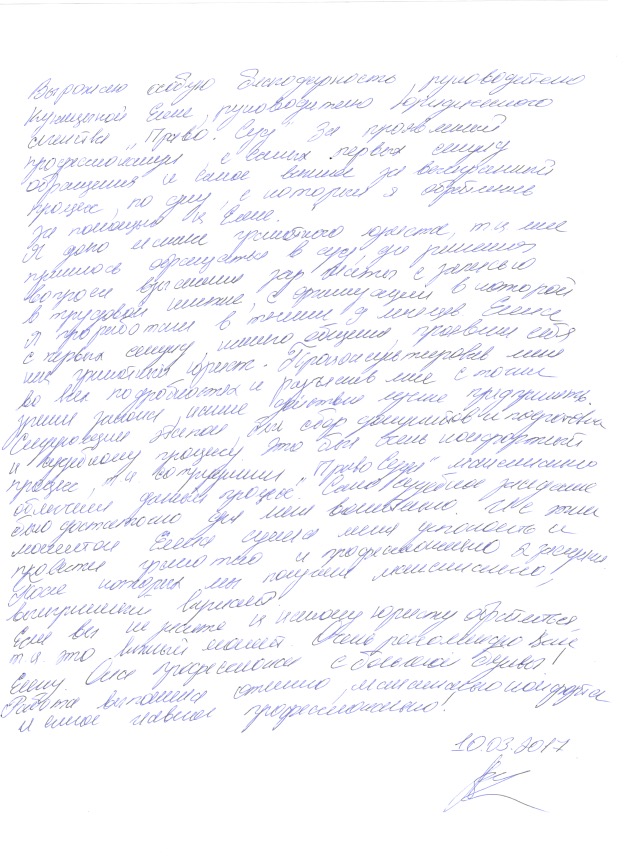 Выражаю особую благодарность руководителю
Елене, руководителю Юридического
агентства "Право. Суд" За проявленный
профессионализм, с самых первых секунд
обращения и самое главное за выигранный
процесс по делу, с которым я обратилась
За помощью к Елене.
Я долго искала грамотного юриста, т.к мне
пришлось обращаться в суд до решения
вопроса взыскания зар платы с
в трудовой книжке, с организации в которой
я проработала в течении 9 месяцев Елена
с первых секунд нашего общения, проявила себя
как грамотный юрист. Проконсультировав меня
во всех подробностях и разъяснив мне с точки
зрения закона какие действия лучше предпринять.
Следующим Этапом был сбор документов и подготовка
к судебному процессу. Это был очень комфортный
процесс, т.к сотрудники "Право Суда" максимально
облегчили данный процесс. Само судебное заседание
было достаточно для меня волнительно. Но с этим
моментом Елена сумела меня успокоить и
провести грамотно и профессионально 2 заседания
После которых мы получили максимально,
выигранный вариант.
Если вы не знаете к какому юристу обратиться
т.к. это важный момент. Очень рекомендую Вам
Елену. Она профессионал с большой буквы!
Работа выполнена отлично максимально комфортно
и самое главное профессионально!
10.03.2017